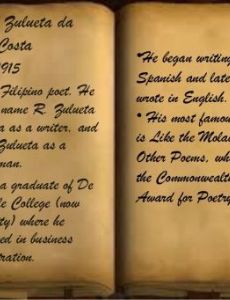 Zulueta da
Costa
915
Filipino poet. He
name R. Zulueta
a as a writer, and
Zulueta as a
man.
a graduate of De
le College (now
ty) where he
ed in business
ration.
•He began writing
Spanish and late
wrote in English.
• His most famou
is Like the Mola
Other Poems, wh
the Commonwealt
Award for Poetry